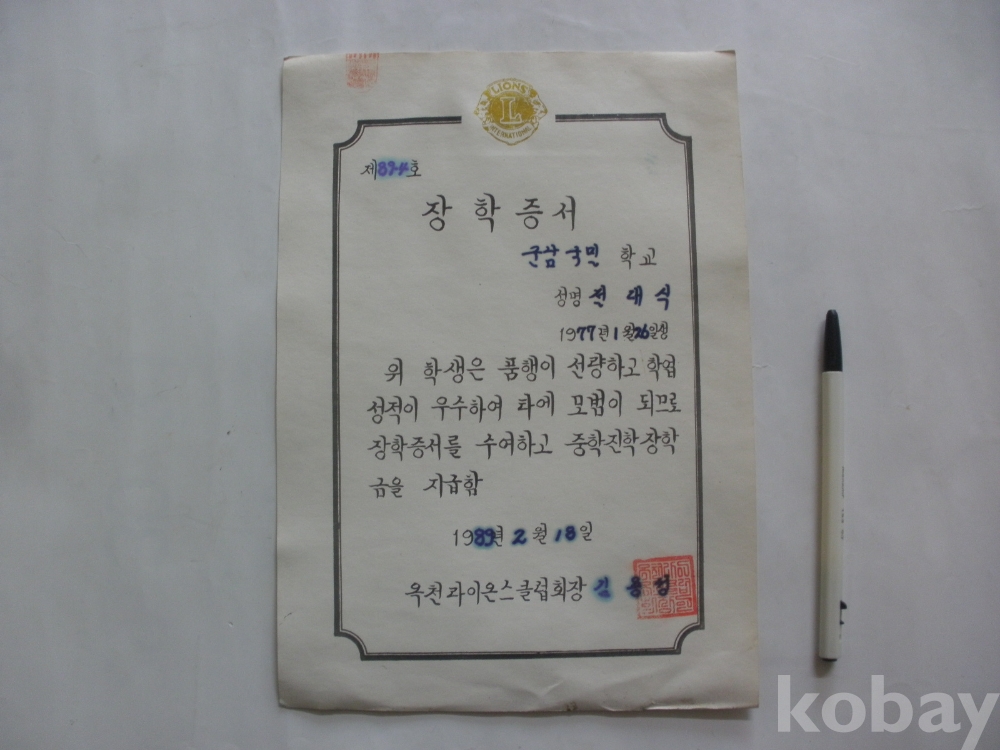 LIONS
L
INTERNATIONAL
제89-4호
장학증서
군남국민 학교
성명 전대식
1977년 1월 26일생
위 학생은 품행이 선량하고 학업
성적이 우수하여 타에 모범이 되므로
장학증서를 수여하고 중학진학장학
금을 지급함
1989년 2월 18일
옥천라이온스클럽회장 김용성
kobay